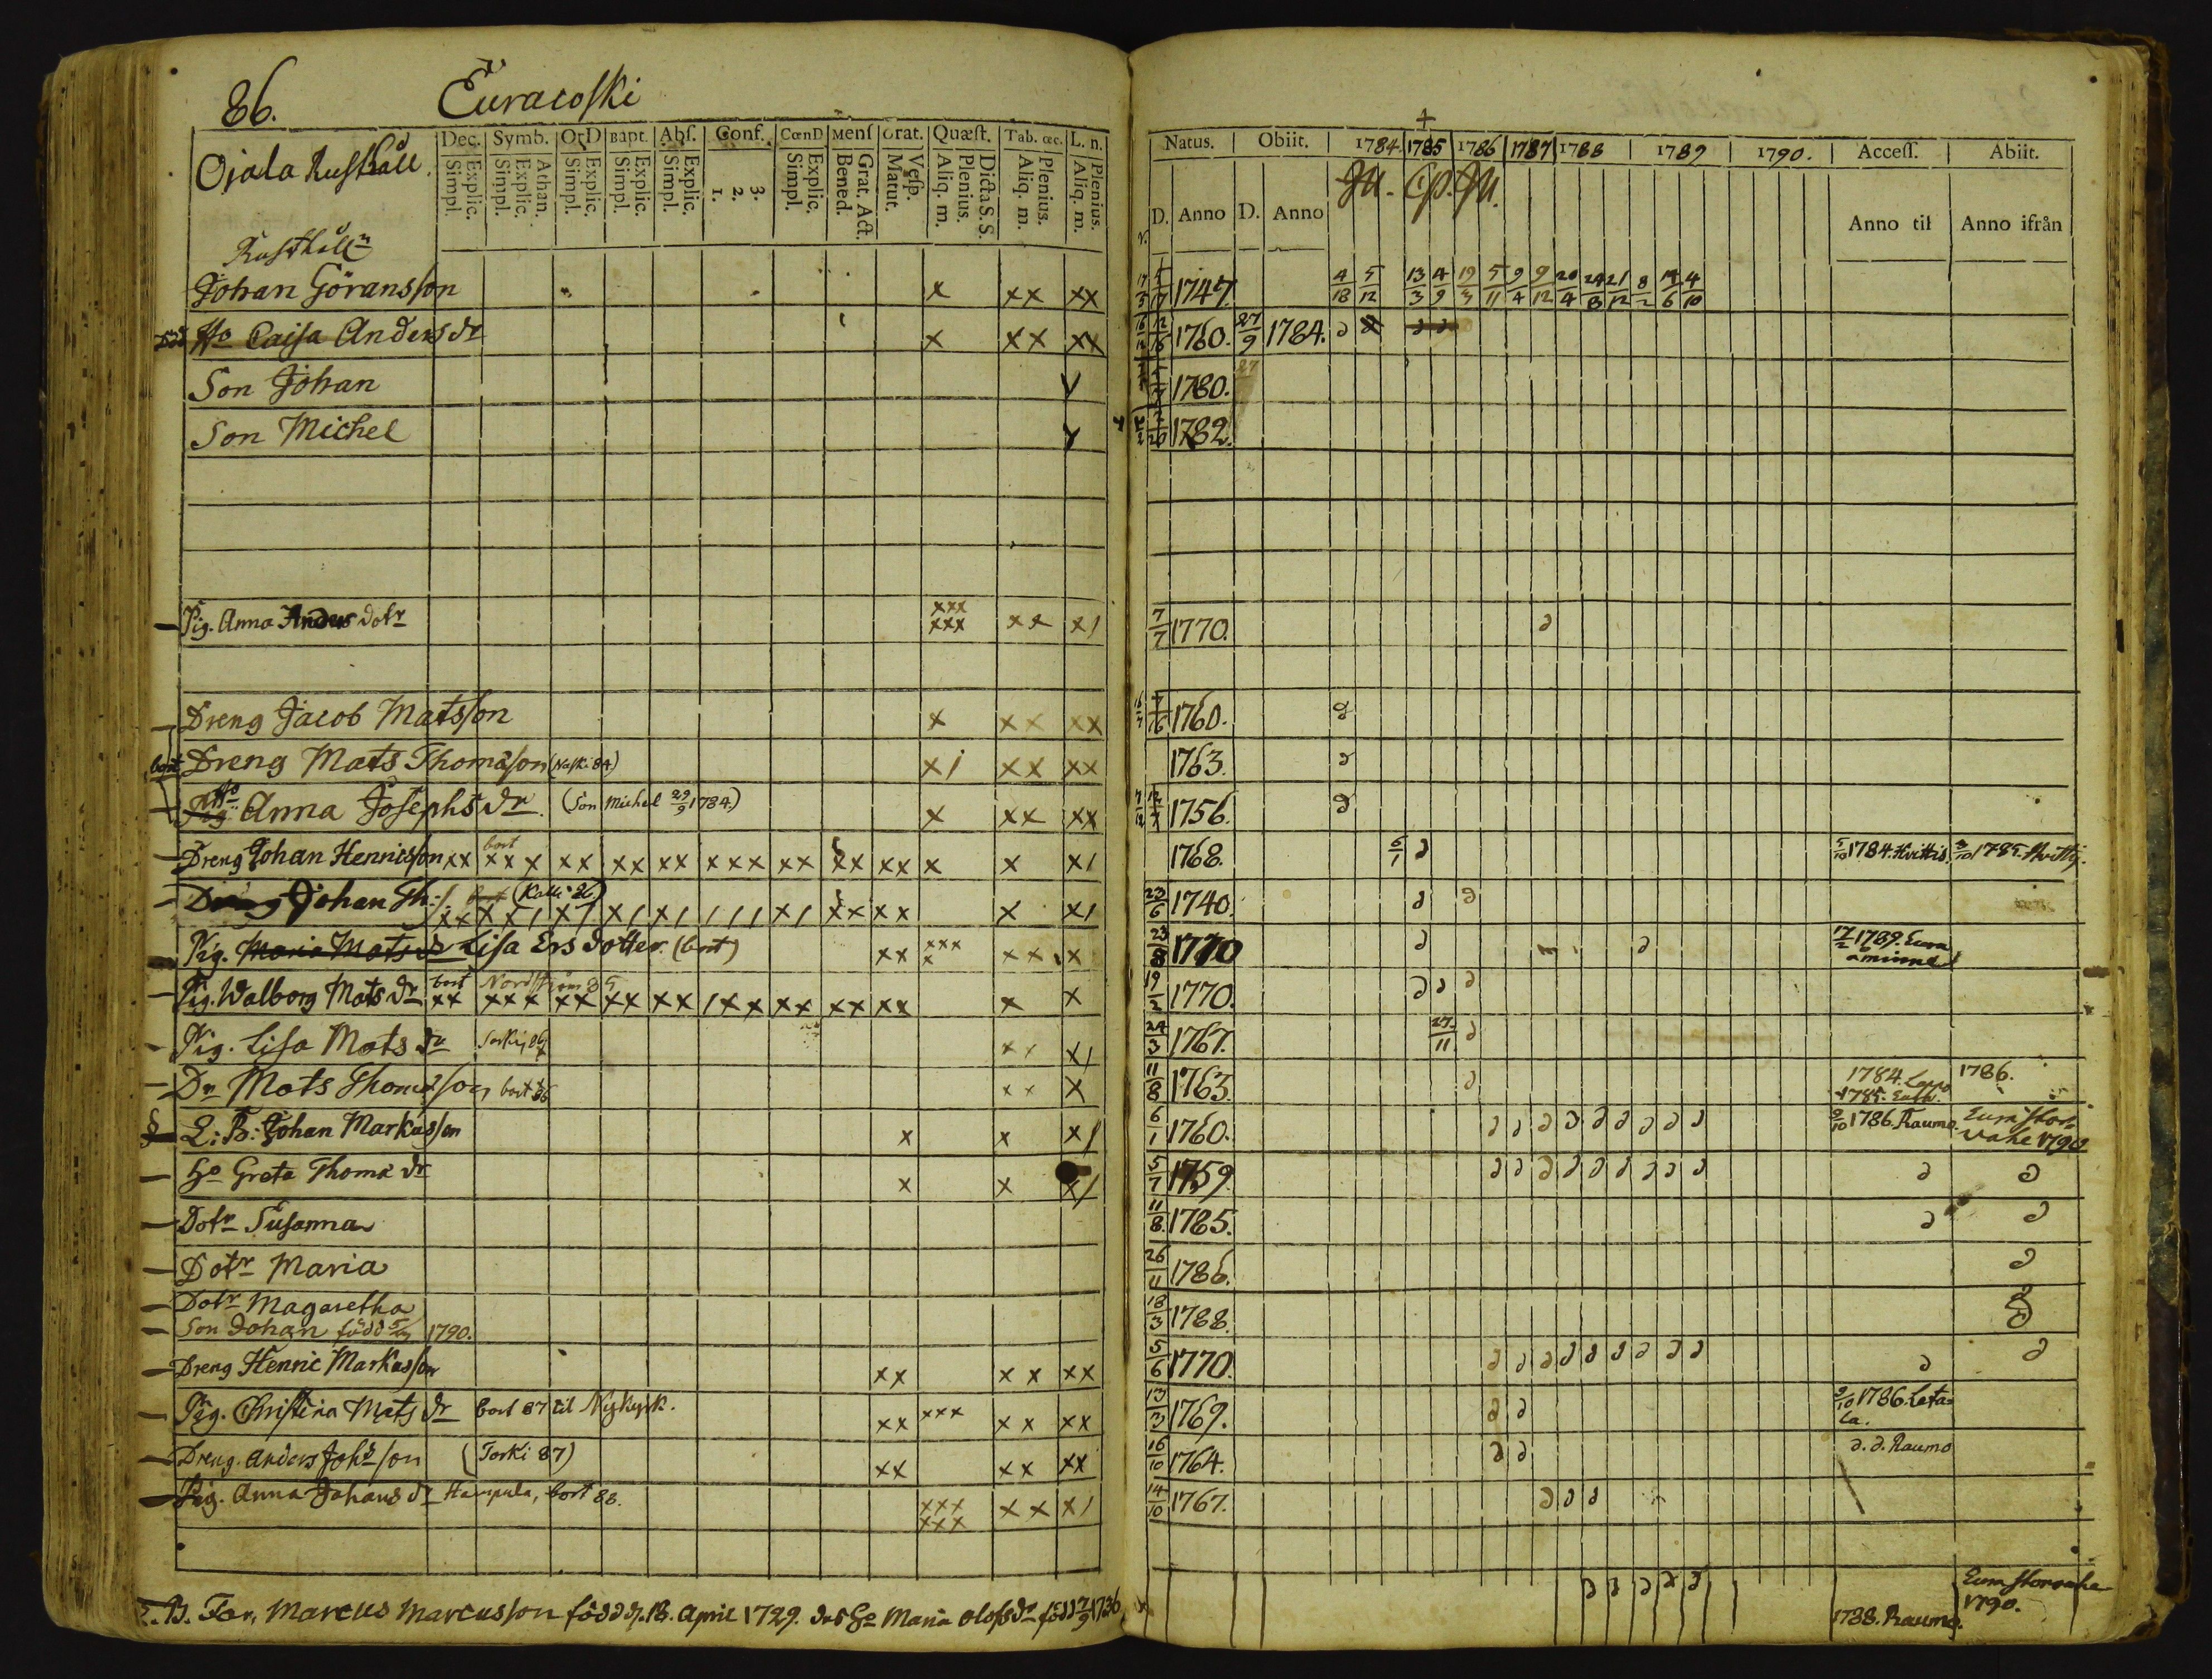 86. Euracoski
Ojala Rusthåll
Dec. Symb. OrD Bapt. Abs. Conf. CœnD Mens Orat. Quæst. Tab. œc. L. n.
Explic. Simpl. Athan. Explic. Simpl. Explic. Simpl. Explic. Simpl. Explic. Simpl. 3. 2. 1. Explic. Simpl. Grat. Act. Bened. Vesp. Matut. Dicta S. S. Plenius. Aliq. m. Plenius. Aliq. m. Plenius. Aliq. m.
Natus. Obiit. 1784. 1785 1786 1787 1788 1789 1790. Access. Abiit.
D. Anno D. Anno Anno til Anno ifrån
Johan Göransson x xx xx 1747 4/18 5/12 13/3 4/9 19/3 5/11 9/4 9/12 20/4 24/8 21/12 8/2 14/6 4/10
Caisa Anders dr x xx xx 1760. 27/9 1784.
Son Johan 1780.
Son Michel 1782.
Pig. Anna Anders dotr xxx xxx xx x/ 7/7 1770.
Dreng Jacob Matsson x xx xx 1760.
bort Dreng Mats Thomasson x/ xx xx 1763.
Anna Josephs dr. (Son Michel 29/9 1784.) x xx xx 1756.
Dreng Johan Henricsson bort xx xxx xx xx xx xxx xx xx xx x x x/ 1768. 5/1 5/10 1784. Hvittis. 3/10 1785. Hvittis.
Dreng Johan Th. (Kalli 86) 23/6 1740.
Pig. Maria Mats dr Lisa Ers dotter. (bort) xx xxx x xx x 23/8 1770 17/2 1789. Eura
Pig. Walborg Mats dr bort Nordström 85 19/2 1770.
Pig. Lisa Mats dr xx x/ 24/3 1767. 27/11
Dr Mats Thomasson bort 86 xx x 11/8 1763. 1784. 1785. 1786.
L: B: Johan Markusson x x x/ 6/1 1760. 9/10 1786. Raumo. Eura 1790
Ho Greta Thomæ dr x x x/ 5/7 1759
Dotr Susanna 11/8 1785.
Dotr Maria 26/11 1786.
Dotr Magaretha 18/3 1788.
Son Johan född 1790.
Dreng Henric Markusson xx xx xx 5/6 1770.
Pig. Christina Mats dr bort 87 til Nykyrk. xx xxx xx xx 13/3 1769. 9/10 1786. Letala.
Dreng. Anders Johsson (Torki 87) xx xx xx 16/10 1764. d. d. Raumo
Pig. Anna Johans dr Hampula, bort 88. xxx xxx xx x/ 14/10 1767.
L. B. Far, Marcus Marcusson född d. 18. April 1729. dess Ho Maria Olofs dr född 17/9 1736
1788. Raumo. 1790.